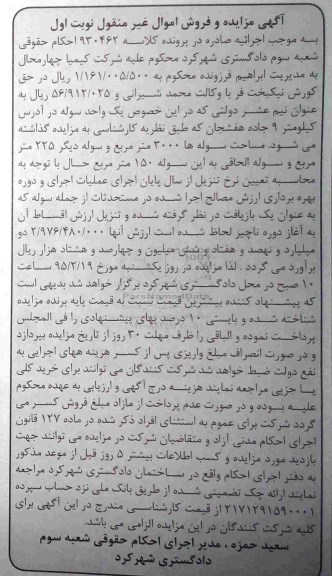 آگهی مزایده و فروش اموال غیر منقول نوبت اول
بـه موجب اجرائیه صادره در پرونده کلاسه ۹۳۰۴۶۲ احکام حقوقی
شعبه سوم دادگستری شهرکرد محکوم علیه شرکت کیمیا چهارمحال
به مدیریت ابراهیم فرزونده محکوم به ۱/۱۶۱/۰۰۵/۵۰۰ ریال در حق
کورش نیکبخت فر با وکالت محمد شیرانی و ۵۶/۹۱۲/۰۲۵ ریال به
عنوان نیم عشر دولتی که در این خصوص یک واحد سوله در آدرس
کیلومتر ۹ جاده هفشجان که طبق نظریه کارشناسی به مزایده گذاشته
می شـود. مساحت سوله ها ۳۰۰۰ متر مربع و سوله دیگر ۲۲۵ متر
مربع و سوله الحاقی به این سوله ۱۵۰ متر مربع حال با توجه به
محاسبه تعیین نرخ تنزیل از سال پایان اجرای عملیات اجرای و دوره
بهره برداری ارزش مصالح اجرا شده در مستحدثات از جمله سوله که
به عنوان یک بازیافت در نظر گرفته شده و تنزیل ارزش اقساط آن
به آغاز دوره ناچیز لحاظ شده است ارزش آنها ۲/۹۷۶/۴۸۰/۰۰۰ دو
میلیارد و نهصد و هفتاد و شش میلیون و چهارصد و هشتاد هزار ریال
برآورد می گردد. لذا مزایده در روز یکشنبه مورخ ۹۵/۲/۱۹ ساعت
۱۰ صبح در محل دادگستری شهرکرد برگزار خواهد شد بدیهی است
که پیشنهاد کننده بیشترین قیمت نسبت به قیمت پایه برنده مزایده
شناخته شده و بایستی ۱۰ درصد بهای پیشنهادی را فی المجلس
پرداخت نموده و الباقی را ظرف مهلت ۳۰ روز از تاریخ مزایده بپردازد
و در صورت انصراف مبلغ واریزی پس از کسر هزینه های اجرایی به
نفع دولت ضبط خواهد شد شرکت کنندگان می توانند برای خرید کلی
یا جزیی مراجعه نمایند هزینـه درج آگهی و ارزیابی به عهده محکوم
علیـه بـوده و در صورت عدم پرداخت از مازاد مبلغ فروش کسر می
گردد شرکت برای عموم به استثنای افراد ذکر شده در ماده ۱۲۷ قانون
اجرای احکام مدنی آزاد و متقاضیان شرکت در مزایده می توانند جهت
بازدید مورد مزایده و کسب اطلاعات بیشتر ۵ روز قبل از موعد مذکور
به دفتر اجرای احکام واقع در ساختمان دادگستری شهرکرد مراجعه
نمایند ارائه چک تضمینی شده از طریق بانک ملی نزد حساب سپرده
۲۱۷۱۲۹۱۵۹۰۰۰۱ از قیمت کارشناسی مندرج در این آگهی برای
کلیه شرکت کنندگان در این مزایده الزامی می باشد.
سعید حمزه ، مدیر اجرای احکام حقوقی شعبه سوم
دادگستری شهرکرد